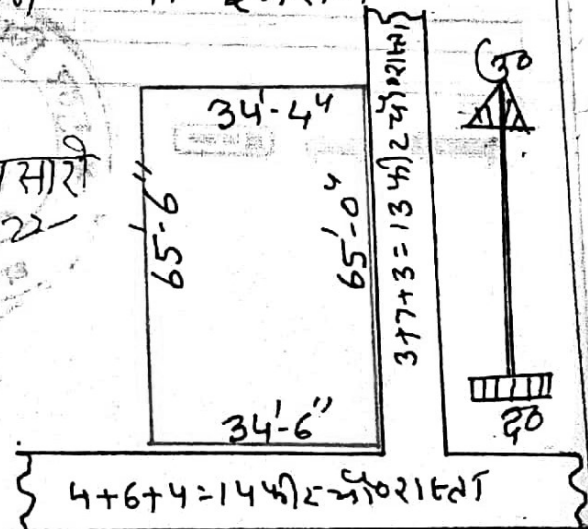 34'-4"
सारो
22
65'-6"
65'-0"
3+7+3=13 फीट चौ० रास्ता
उ०
34'-6"
द०
4+6+4=14 फीट चौ० रास्ता